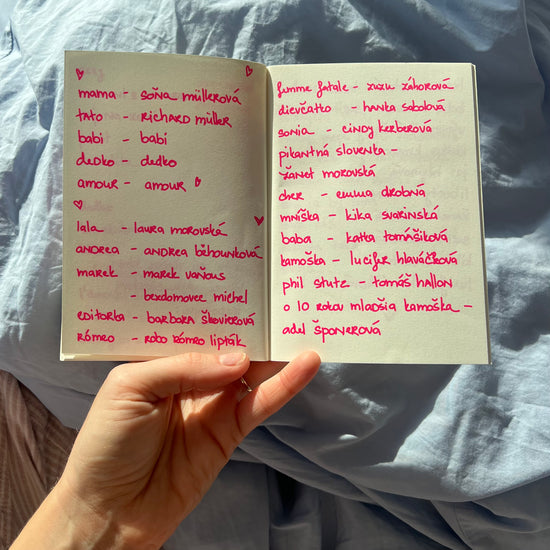 mama - soňa müllerová
tato - richard müller
babi - babi
dedko - dedko
amour - amour
lala - laura moravská
andrea - andrea běhounková
marek - marek vaňous
- bezdomovec michel
editorka - barbora škovierová
rómeo - robo rómeo lipták
femme fatale - zuzu záhorová
dievčatko - hanka sobolová
sonia - cindy kerberová
pikantná slovenka -
žanet moravská
cher - emma drobná
mníška - kika svarinská
baba - katka tomášiková
kamoška - lucifer hlaváčková
phil stutz - tomáš hallon
o 10 rokov mladšia kamoška -
adel šponerová